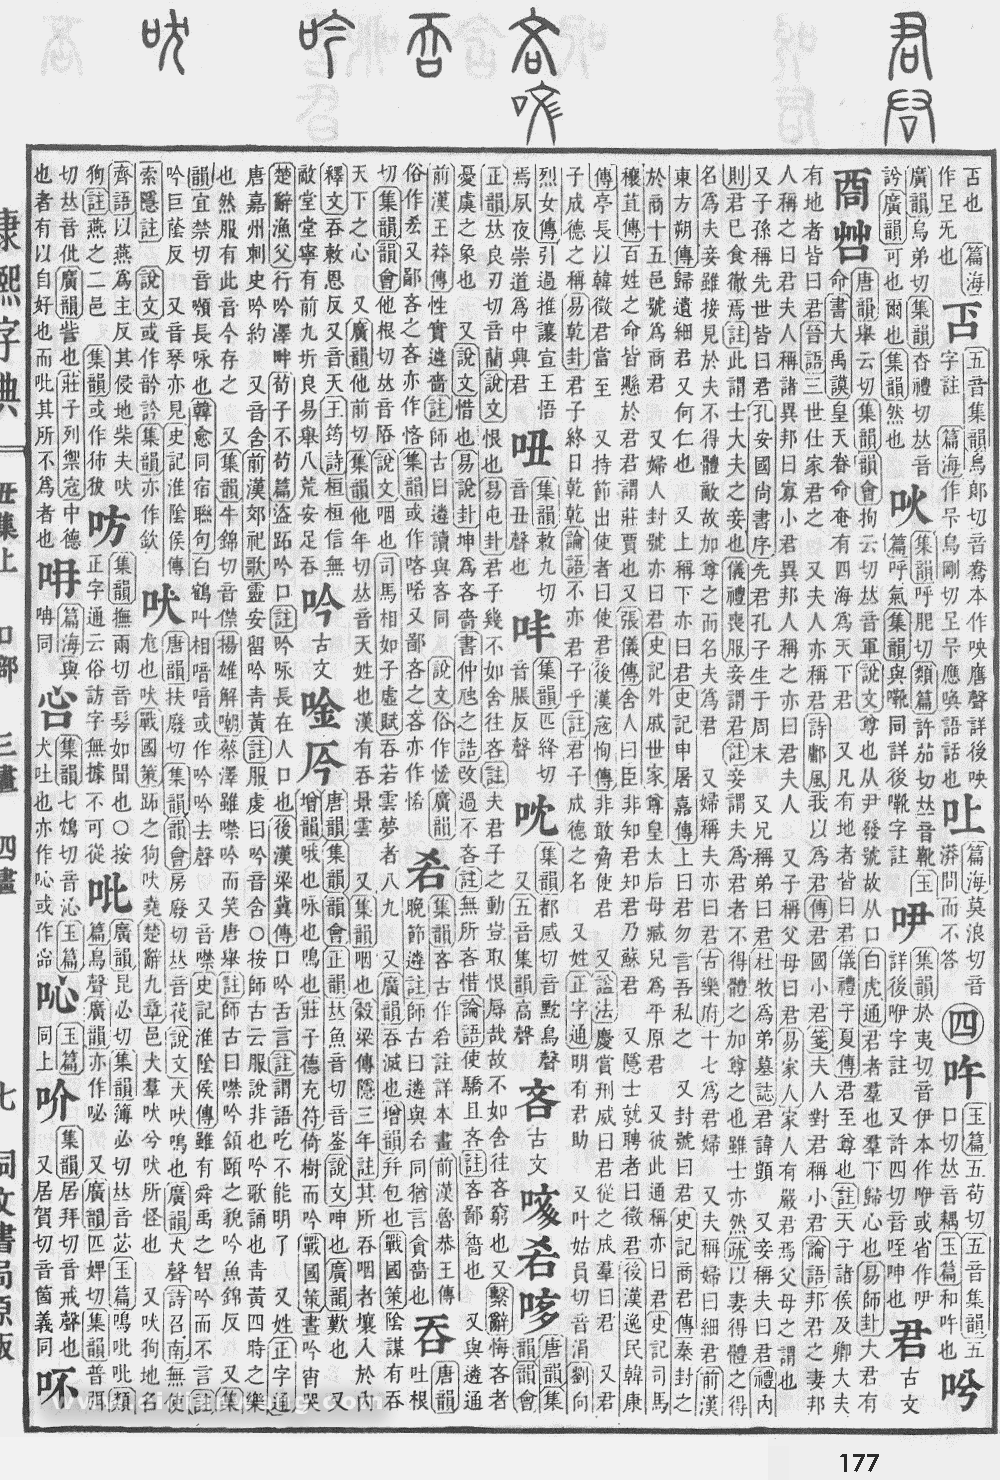 篇海
五音集韻烏郎切音鴦本作咉譍聲詳後咉
篇海莫浪切音
漭問而不答
四
吘
玉篇五苟切五音集韻五
口切𠀤音耦玉篇和吘也
吙
集韻呼肥切類篇許茄切𠀤音靴玉
篇呼氣集韻與㗾同詳後㗾字註
吚
集韻於夷切音伊本作咿或省作吚
詳後咿字註 又許四切音呬呻也
君
古文
唐韻舉云切集韻韻會拘云切𠀤音軍說文尊也从尹發號故从口白虎通君者羣也羣下歸心也易師卦大君有
命書大禹謨皇天眷命奄有四海爲天下君 又凡有地者皆曰君儀禮子夏傳君至尊也註天子諸侯及卿大夫
有地者皆曰君晉語三世仕家君之 又夫人亦稱君詩鄘風我以爲君傳君國小君箋夫人對君稱小君論語邦君之妻邦
人稱之曰君夫人稱諸異邦曰寡小君異邦人稱之亦曰君夫人 又子稱父母曰君易家人家人有嚴君焉父母之謂也
又子孫稱先世皆曰君孔安國尚書序先君孔子生于周末 又兄稱弟曰君杜牧爲弟墓誌君諱顗 又妾稱夫曰君禮內
則君已食徹焉註此謂士大夫之妾也儀禮喪服妾謂君註妾謂夫爲君者不得體之加尊之也雖士亦然疏以妻得體之得
名爲夫妾雖接見於夫不得體敵故加尊之而名夫爲君 又婦稱夫亦曰君古樂府十七爲君婦 又夫稱婦曰細君前漢
東方朔傳歸遺細君又何仁也 又上稱下亦曰君史記申屠嘉傳上曰君勿言吾私之 又封號曰君史記商君傳秦封之
於商十五邑號爲商君 又婦人封號亦曰君史記外戚世家尊皇太后母臧兒爲平原君 又彼此通稱亦曰君史記司馬
穰苴傳百姓之命皆懸於君君謂莊賈也又張儀傳舍人曰臣非知君知君乃蘇君 又隱士就聘者曰徵君後漢逸民韓康
傳亭長以韓徵君當至 又持節出使者曰使君後漢寇恂傳非敢脅使君 又諡法慶賞刑威曰君從之成羣曰君 又君
子成德之稱易乾卦君子終日乾乾論語不亦君子乎註君子成德之名 又姓正字通明有君助 又叶姑員切音涓劉向
烈女傳引過推讓宣王悟
焉夙夜崇道爲中興君
吜
集韻敕九切
音丑聲也
集韻匹絳切
集韻都感切音黕鳥聲
又五音集韻高聲
吝
古文
唐韻集韻韻會
正韻𠀤良刃切音藺說文恨也易屯卦君子幾不如舍往吝註夫君子之動豈取恨辱哉故不如舍往吝窮也又繫辭悔吝者
憂虞之象也 又說文惜也易說卦坤爲吝嗇書仲虺之誥改過不吝註無所吝惜論語使驕且吝註吝鄙嗇也 又與遴通
前漢王莽傳性實遴嗇註師古曰遴讀與吝同 說文俗作恡廣韻
俗作㤐又鄙吝之吝亦作悋集韻或作
集韻吝古作㖁註詳本畫前漢魯恭王傳
晚節遴註師古曰遴與吝同猶言貪嗇也
吞
唐韻
吐根
切集韻韻會他根切𠀤音說文咽也司馬相如子虛賦吞若雲夢者八九 又廣韻吞滅也增韻幷包也戰國策陰謀有吞
天下之心 又廣韻他前切集韻他年切𠀤音天姓也漢有吞景雲 又集韻咽也穀梁傳隱三年註其所吞咽者壤入於內
釋文吞敕恩反又音天王筠詩桓桓信無
敵堂堂寧有前九圻良易舉八荒安足吞
吟
古文
唫
唐韻集韻韻會正韻𠀤魚音切音崟說文呻也廣韻歎也 又
增韻哦也咏也鳴也莊子德充符倚樹而吟戰國策晝吟宵哭
楚辭漁父行吟澤畔荀子不苟篇盜跖吟口註吟咏長在人口也後漢梁冀傳口吟舌言註謂語吃不能明了 又姓正字通
唐嘉州刺史吟約 又音含前漢郊祀歌靈安留吟靑黃註服虔曰吟音含○按師古云服說非也吟歌誦也靑黃四時之樂
也然服有此音今存之 又集韻牛錦切音僸揚雄解嘲蔡澤雖噤吟而笑唐舉註師古曰噤吟頷頤之貌吟魚錦反 又集
韻宜禁切音長咏也韓愈同宿聯句白鶴叫相喑喑或作吟吟去聲 又音噤史記淮陰侯傳雖有舜禹之智吟而不言註
吟巨蔭反 又音琴亦見史記淮陰侯傳
索隱註 說文或作訡集韻亦作
吠
唐韻扶廢切集韻韻會房廢切𠀤音茷說文犬吠鳴也廣韻犬聲詩召南無使
尨也吠戰國策跖之狗吠堯楚辭九章邑犬羣吠兮吠所怪也 又吠狗地名
齊語以燕爲主反其侵地柴夫吠
狗註燕之二邑 集韻或作
㕫
集韻撫兩切音髣如聞也○按
正字通云俗訪字無據不可從
吡
廣韻毘必切集韻簿必切𠀤音苾玉篇鳴吡吡類
篇鳥聲廣韻亦作咇 又廣韻匹婢切集韻普弭
切𠀤音仳廣韻訾也莊子列禦寇中德
也者有以自好也而吡其所不爲者也
篇海與
同
集韻七鴆切音沁玉篇
犬吐也亦作吣或作
吣
玉篇
同上
吤
集韻居拜切音戒聲也
又居賀切音箇義同
吥
康熙字典
丑集上 口部 三畫 四畫
七
同文書局原版
177